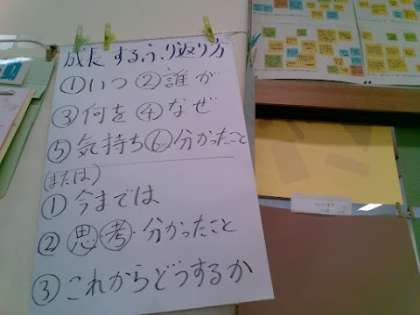 成長するふり返り方
①いつ②誰が
③何を④なぜ
⑤気持ち⑥分かったこと
(または)
①今までは
②思考・分かったこと
③これからどうするか